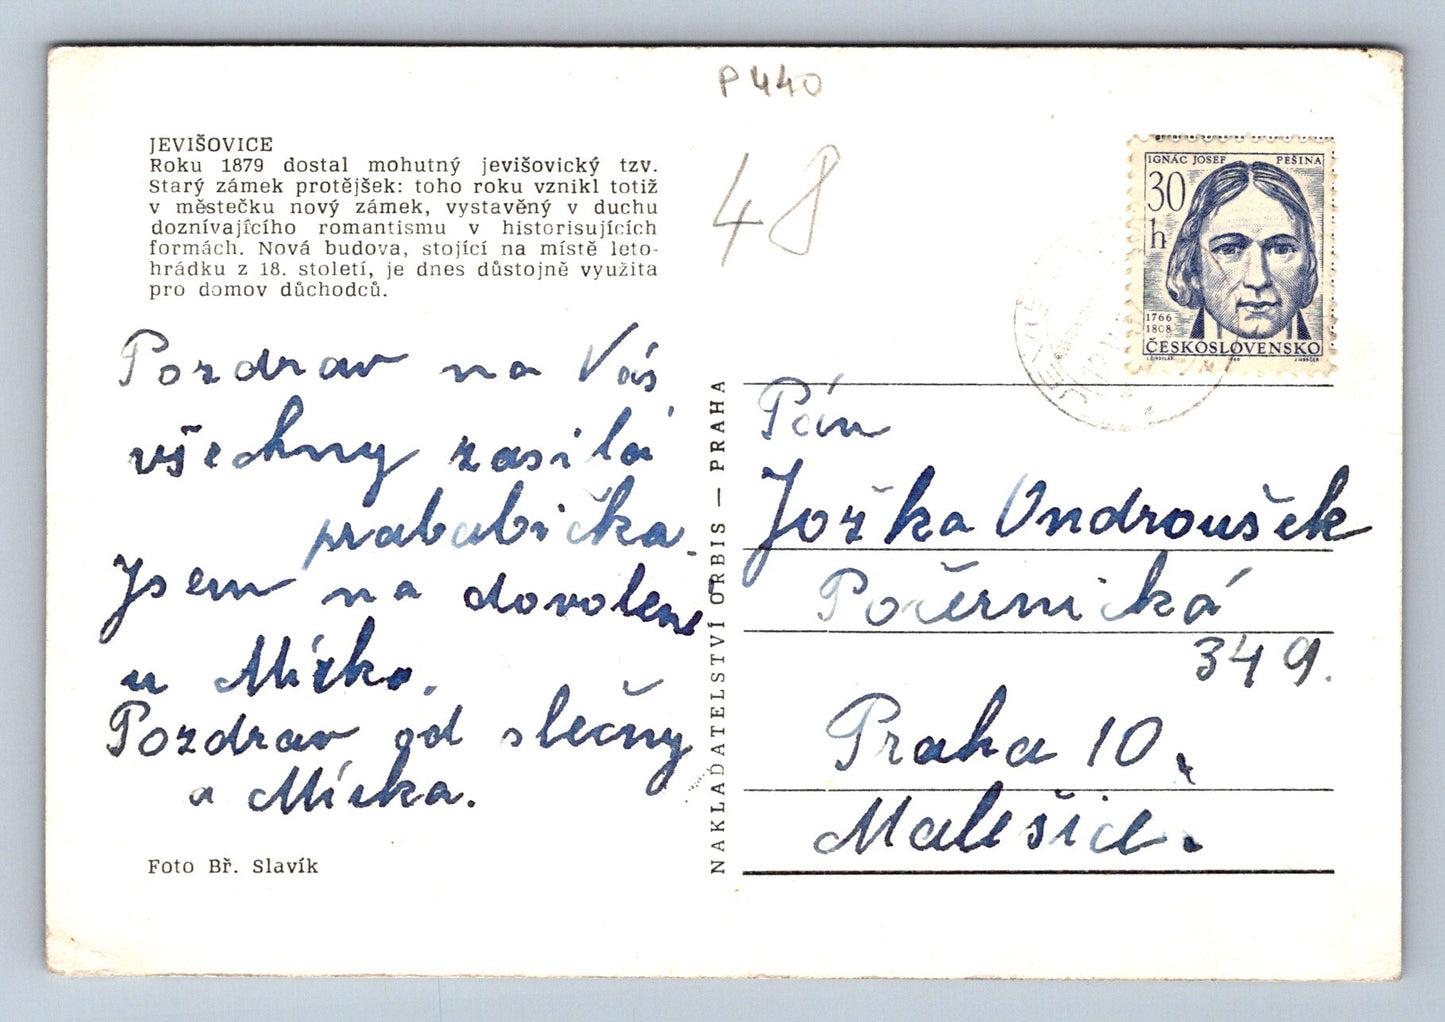 P 440
48
JEVIŠOVICE
Roku 1879 dostal mohutný jevišovický tzv.
Starý zámek protějšek: toho roku vznikl totiž
v městečku nový zámek, vystavěný v duchu
doznívajícího romantismu v historisujících
formách. Nová budova, stojící na místě leto-
hrádku z 18. století, je dnes důstojně využita
pro domov důchodců.
Pozdrav na Vás
všechny zasílá
prababička.
Jsem na dovolené
u Mirka.
Pozdrav od slečny
a Mirka.
Foto Bř. Slavík
NAKLADATELSTVÍ ORBIS — PRAHA
IGNÁC JOSEF PEŠINA
30
h
1766
1808
ČESKOSLOVENSKO
Pán
Jožka Ondroušek
Počernická
349.
Praha 10,
Malešice.